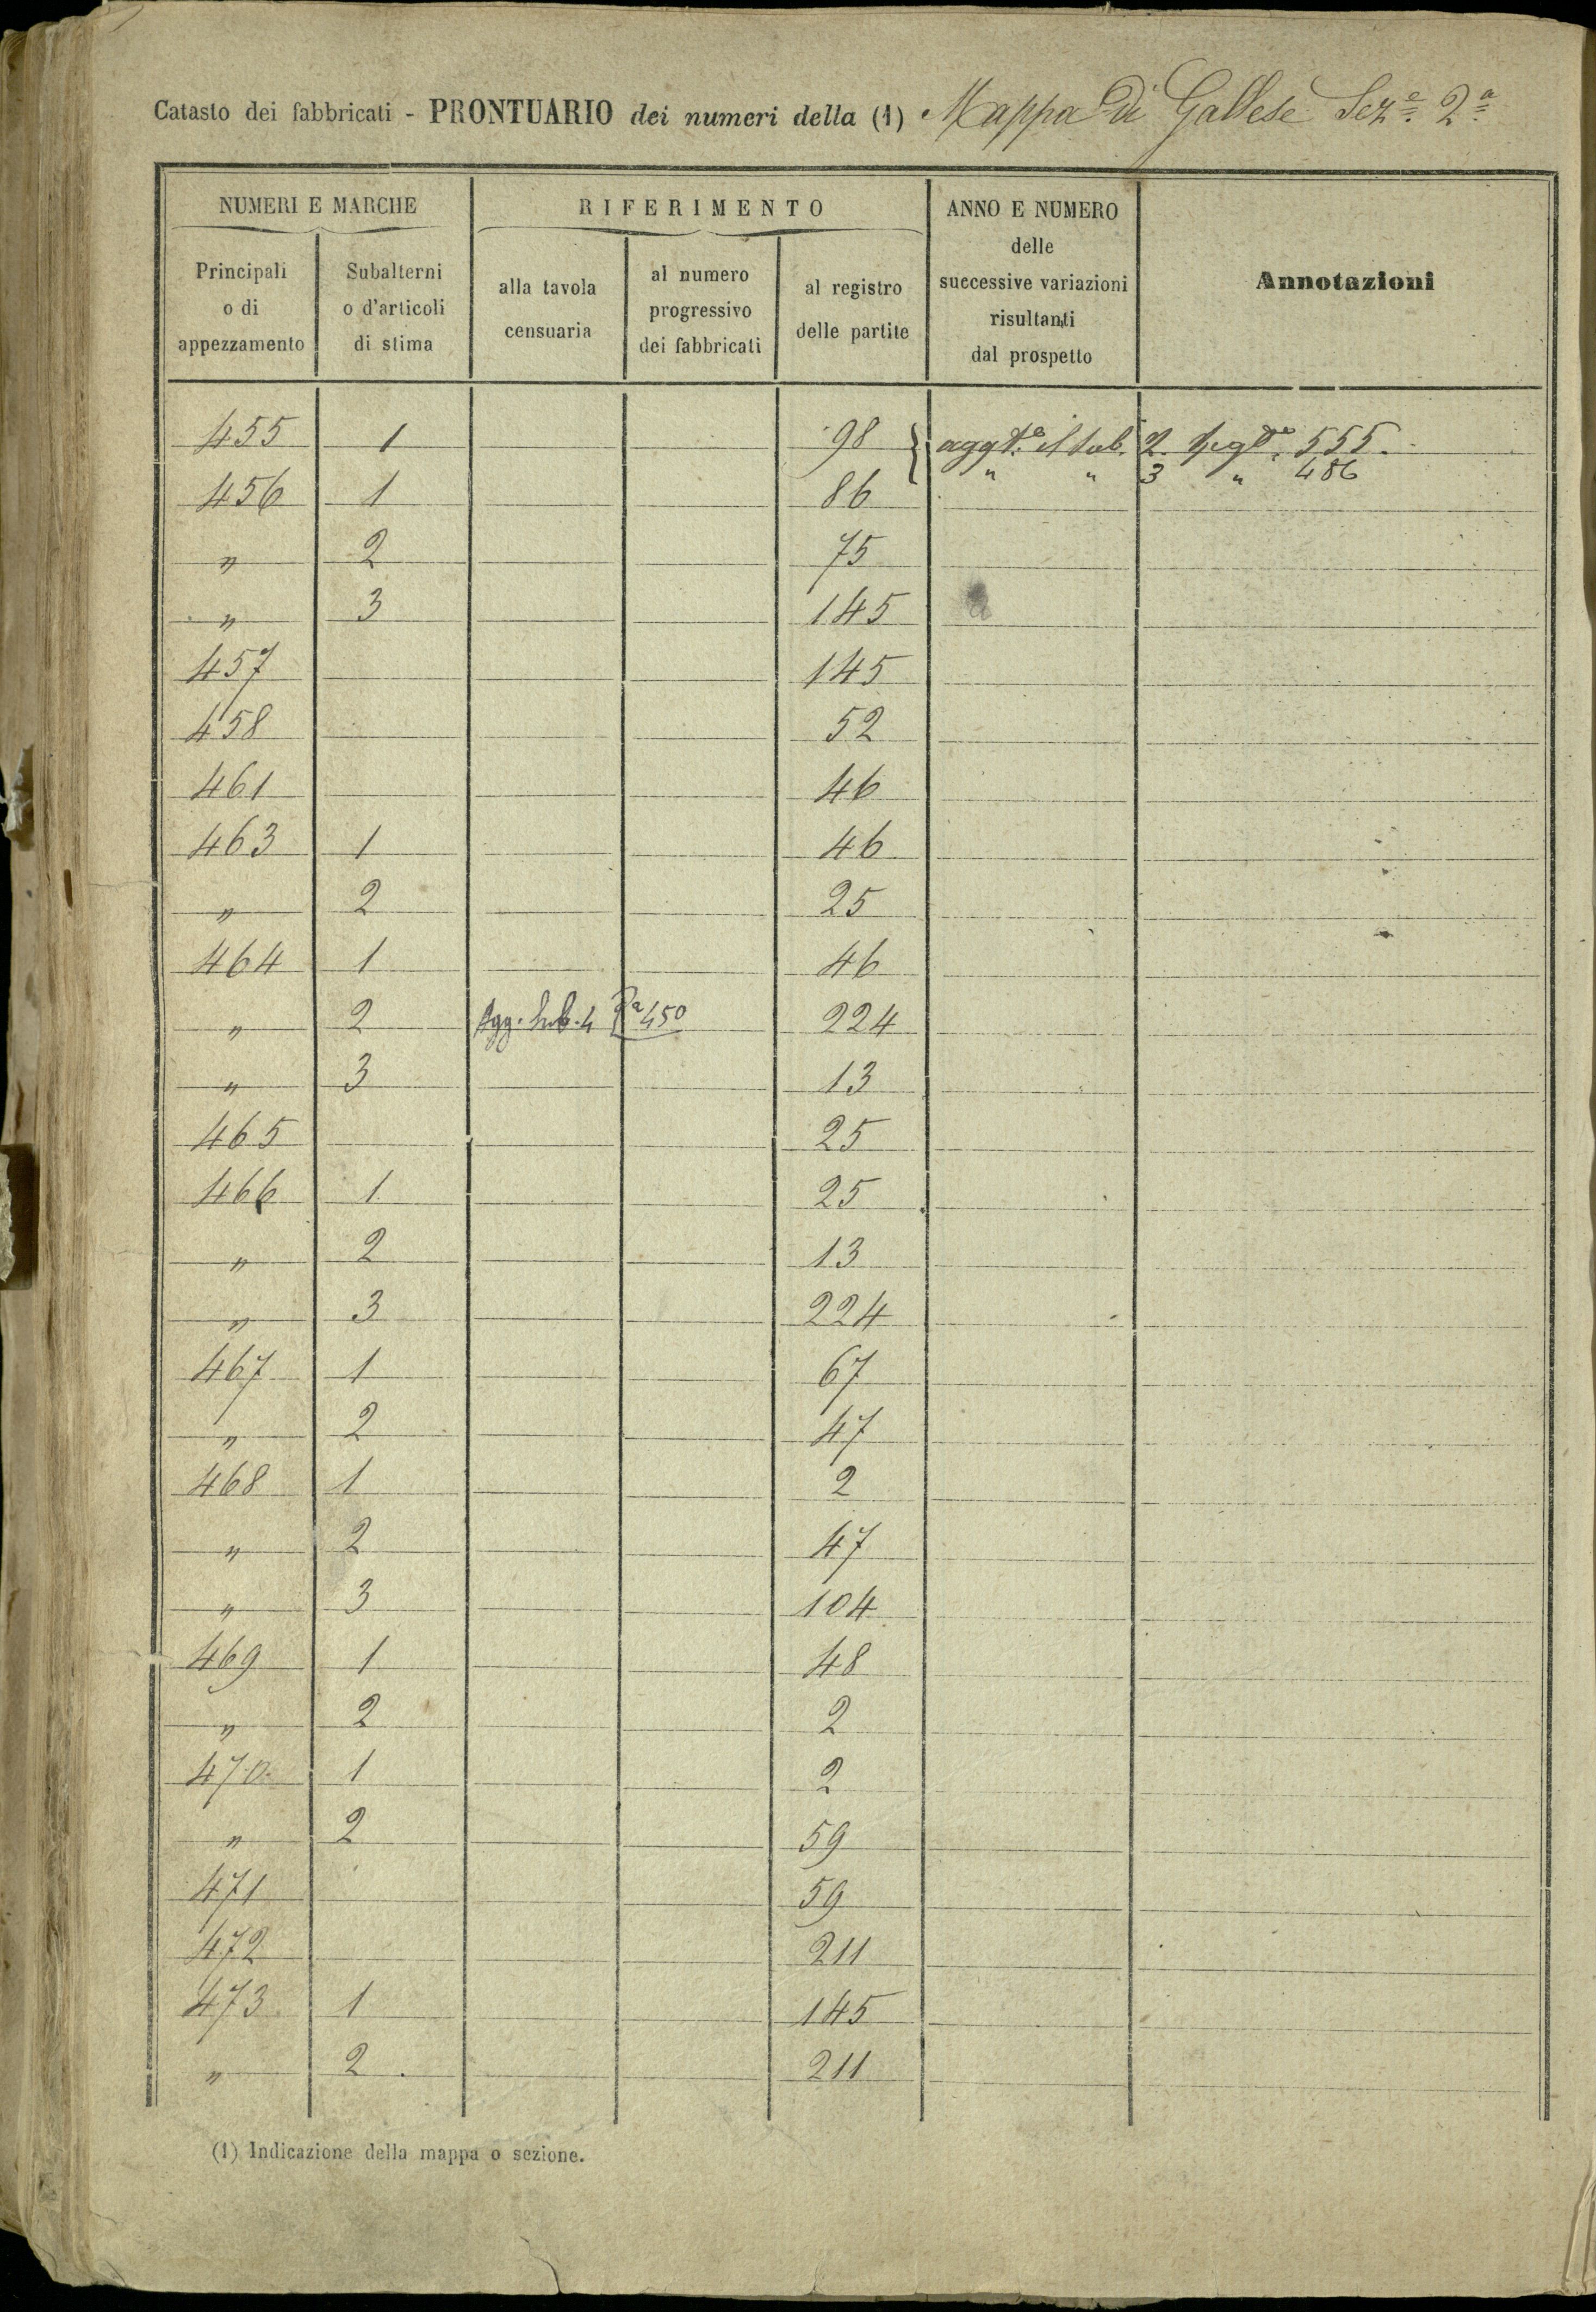 Catasto dei fabbricati - PRONTUARIO dei numeri della (1) Mappa di Gallese Sez.e 2a
NUMERI E MARCHE
Principali
o di
appezzamento
Subalterni
o d'articoli
di stima
RIFERIMENTO
alla tavola
censuaria
al numero
progressivo
dei fabbricati
al registro
delle partite
ANNO E NUMERO
delle
successive variazioni
risultanti
dal prospetto
Annotazioni
455 1 98 { aggto il sub. 2. 555.
456 1 86 " " 3 " 486
" 2 75
" 3 145
457 145
458 52
461 46
463 1 46
" 2 25
464 1 46
" 2 Agg. Sub. 4 Pa 450 224
" 3 13
465 25
466 1 25
" 2 13
" 3 224
467 1 67
" 2 47
468 1 2
" 2 47
" 3 104
469 1 48
" 2 2
470 1 2
" 2 59
471 59
472 211
473 1 145
" 2 211
(1) Indicazione della mappa o sezione.